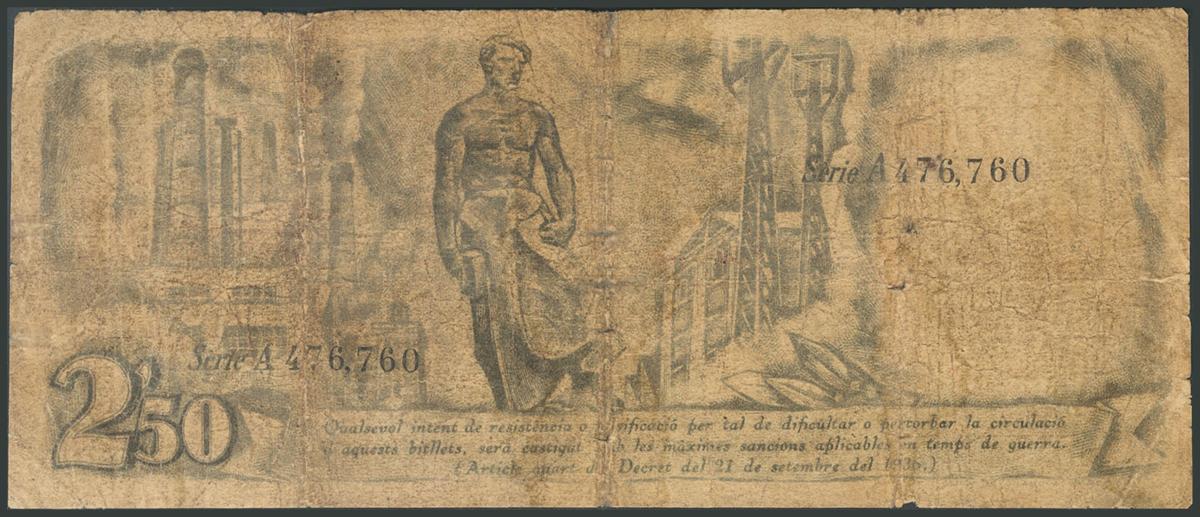 Serie A 476,760
Serie A 476,760
2'50
Qualsevol intent de resistència o sificació per tal de dificultar o pertorbar la circulació
d'aquests bitllets, serà castigat b les màximes sancions aplicables en temps de guerra.
(Article quart d Decret del 21 de setembre del 1936.)